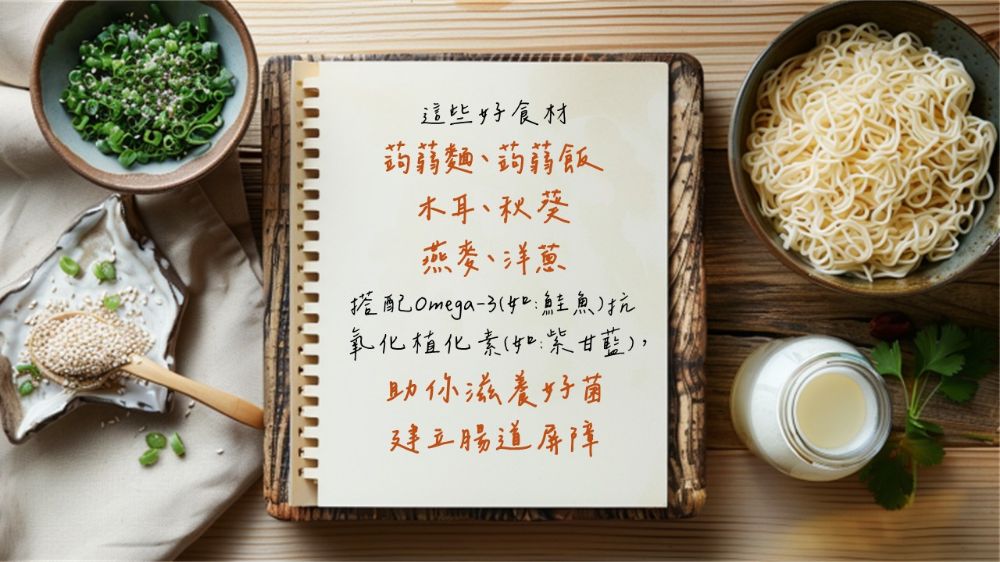 這些好食材
蒟蒻麵、蒟蒻飯
木耳、秋葵
燕麥、洋蔥
搭配Omega-3(如:鮭魚)抗
氧化植化素(如:紫甘藍),
助你滋養好菌
建立腸道屏障